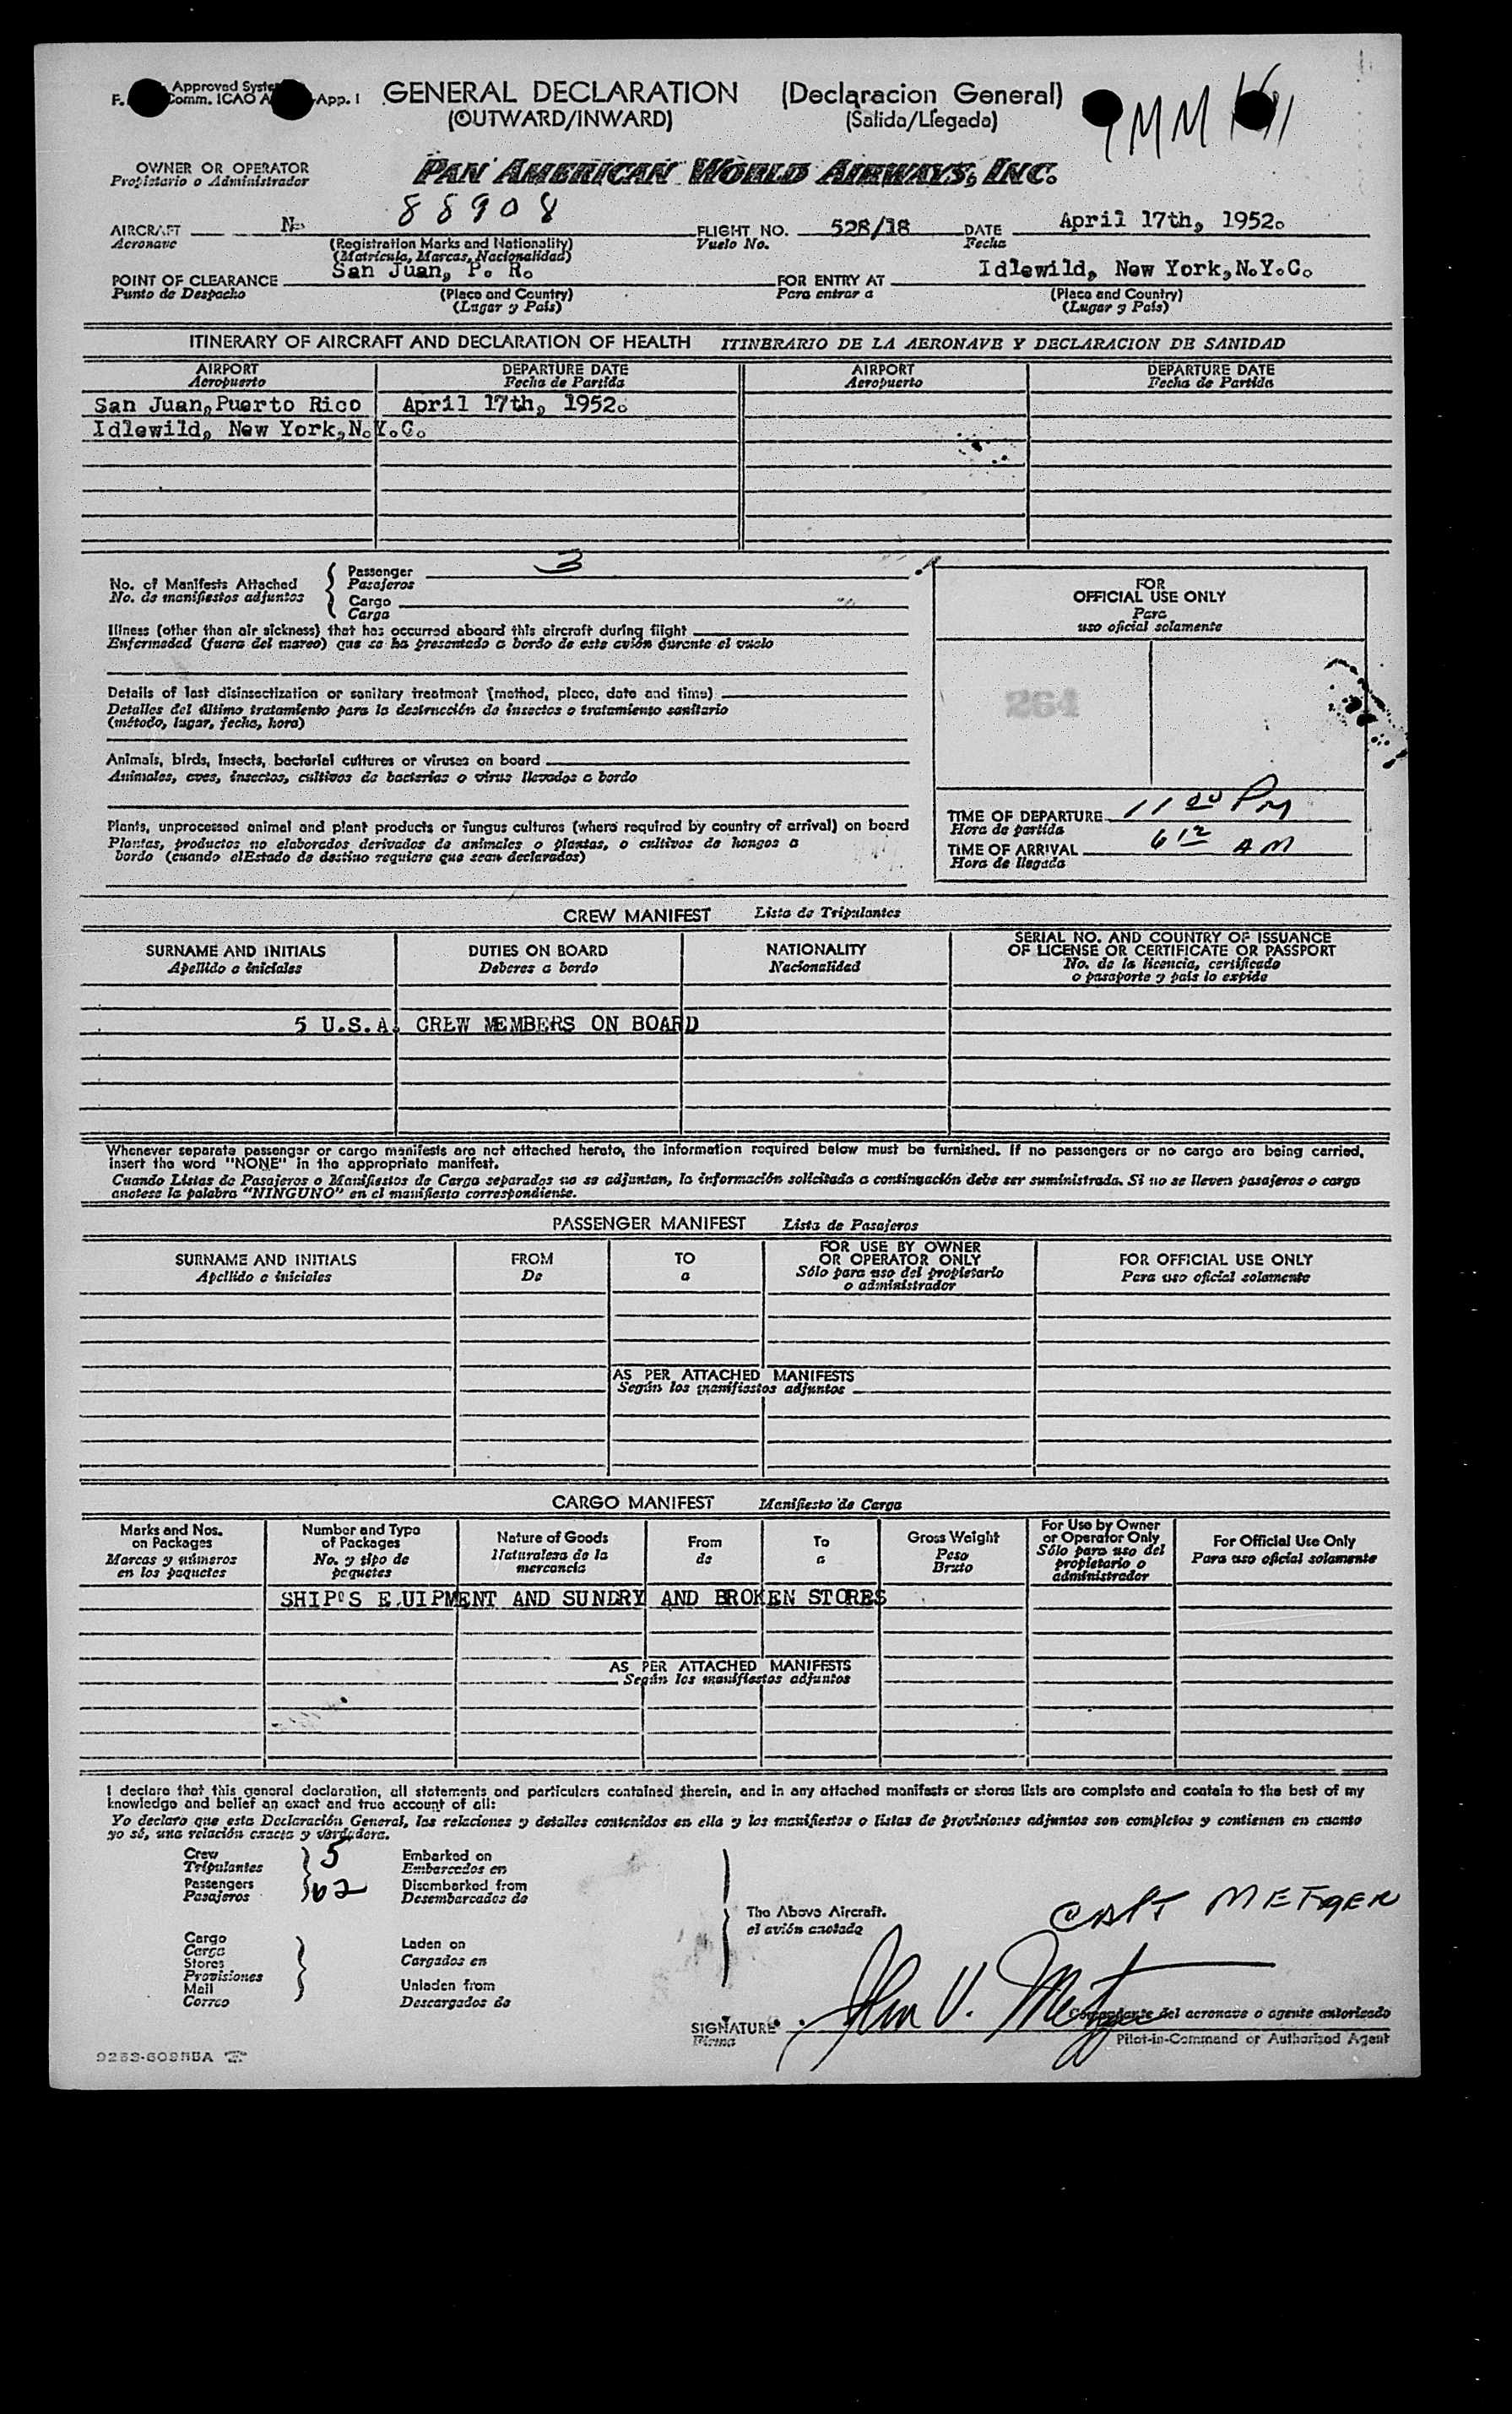 Approved System
F. Comm. ICAO App. I
GENERAL DECLARATION (Declaracion General)
(OUTWARD/INWARD) (Salida/Llegada)
OWNER OR OPERATOR
Propietario o Administrador
PAN AMERICAN WORLD AIRWAYS, INC.
AIRCRAFT N- 88908 FLIGHT NO. 528/18 DATE April 17th, 1952.
Acronave (Registration Marks and Nationality) Vuelo No. Fecha
(Matricula, Marcas, Nacionalidad)
POINT OF CLEARANCE San Juan, P. R. FOR ENTRY AT Idlewild, New York,N.Y.C.
Punto de Despacho (Place and Country) Para entrar a (Place and Country)
(Lugar y País) (Lugar y País)
ITINERARY OF AIRCRAFT AND DECLARATION OF HEALTH ITINERARIO DE LA AERONAVE Y DECLARACION DE SANIDAD
AIRPORT DEPARTURE DATE AIRPORT DEPARTURE DATE
Aeropuerto Fecha de Partida Aeropuerto Fecha de Partida
San Juan,Puerto Rico April 17th, 1952.
Idlewild, New York,N.Y.C.
No. of Manifests Attached Passenger 3
No. de manifiestos adjuntos Pasajeros
Cargo
Carga
Illness (other than air sickness) that has occurred aboard this aircraft during flight
Enfermedad (fuera del mareo) que se ha presentado a bordo de este avión durante el vuelo
Details of last disinsectization or sanitary treatment (method, place, date and time)
Detalles del último tratamiento para la destrucción de insectos o tratamiento sanitario
(método, lugar, fecha, hora)
Animals, birds, insects, bacterial cultures or viruses on board
Animales, aves, insectos, cultivos de bacterias o virus llevados a bordo
Plants, unprocessed animal and plant products or fungus cultures (where required by country of arrival) on board
Plantas, productos no elaborados derivados de animales o plantas, o cultivos de hongos a
bordo (cuando elEstado de destino requiere que sean declarados)
FOR
OFFICIAL USE ONLY
Para
uso oficial solamente
264
TIME OF DEPARTURE 11 00 PM
Hora de partida
TIME OF ARRIVAL 6 12 AM
Hora de llegada
CREW MANIFEST Lista de Tripulantes
SURNAME AND INITIALS DUTIES ON BOARD NATIONALITY SERIAL NO. AND COUNTRY OF ISSUANCE
OF LICENSE OR CERTIFICATE OR PASSPORT
Apellido e iniciales Deberes a bordo Nacionalidad No. de la licencia, certificado
o pasaporte y país lo expide
5 U.S.A. CREW MEMBERS ON BOARD
Whenever separate passenger or cargo manifests are not attached hereto, the information required below must be furnished. If no passengers or no cargo are being carried,
insert the word "NONE" in the appropriate manifest.
Cuando Listas de Pasajeros o Manifiestos de Carga separados no se adjuntan, la información solicitada a continuación debe ser suministrada. Si no se lleven pasajeros o carga
anotese la palabra "NINGUNO" en el manifiesto correspondiente.
PASSENGER MANIFEST Lista de Pasajeros
SURNAME AND INITIALS FROM TO FOR USE BY OWNER
OR OPERATOR ONLY FOR OFFICIAL USE ONLY
Apellido e iniciales De a Sólo para uso del propietario
o administrador Para uso oficial solamente
AS PER ATTACHED MANIFESTS
Según los manifiestos adjuntos
CARGO MANIFEST Manifiesto de Carga
Marks and Nos.
on Packages
Marcas y números
en los paquetes
Number and Type
of Packages
No. y tipo de
paquetes
Nature of Goods
Naturaleza de la
mercancia
From
de
To
a
Gross Weight
Peso
Bruto
For Use by Owner
or Operator Only
Sólo para uso del
propietario o
administrador
For Official Use Only
Para uso oficial solamente
SHIP'S E UIPMENT AND SUNDRY AND BROKEN STORES
AS PER ATTACHED MANIFESTS
Según los manifiestos adjuntos
I declare that this general declaration, all statements and particulars contained therein, and in any attached manifests or stores lists are complete and contain to the best of my
knowledge and belief an exact and true account of all:
Yo declaro que esta Declaración General, las relaciones y detalles contenidos en ella y los manifiestos o listas de provisiones adjuntos son completos y contienen en cuanto
yo sé, una relación exacta y verdadera.
Crew 5 Embarked on
Tripulantes Embarcados en
Passengers 62 Disembarked from
Pasajeros Desembarcados de
The Above Aircraft.
el avión anotado
Cargo
Carga
Stores
Provisiones
Mail
Correo
Laden on
Cargados en
Unladen from
Descargados de
CAPT METZGER
SIGNATURE John V. Metzger
Firma
Comandante del acronave o agente autorizado
Pilot-in-Command or Authorized Agent